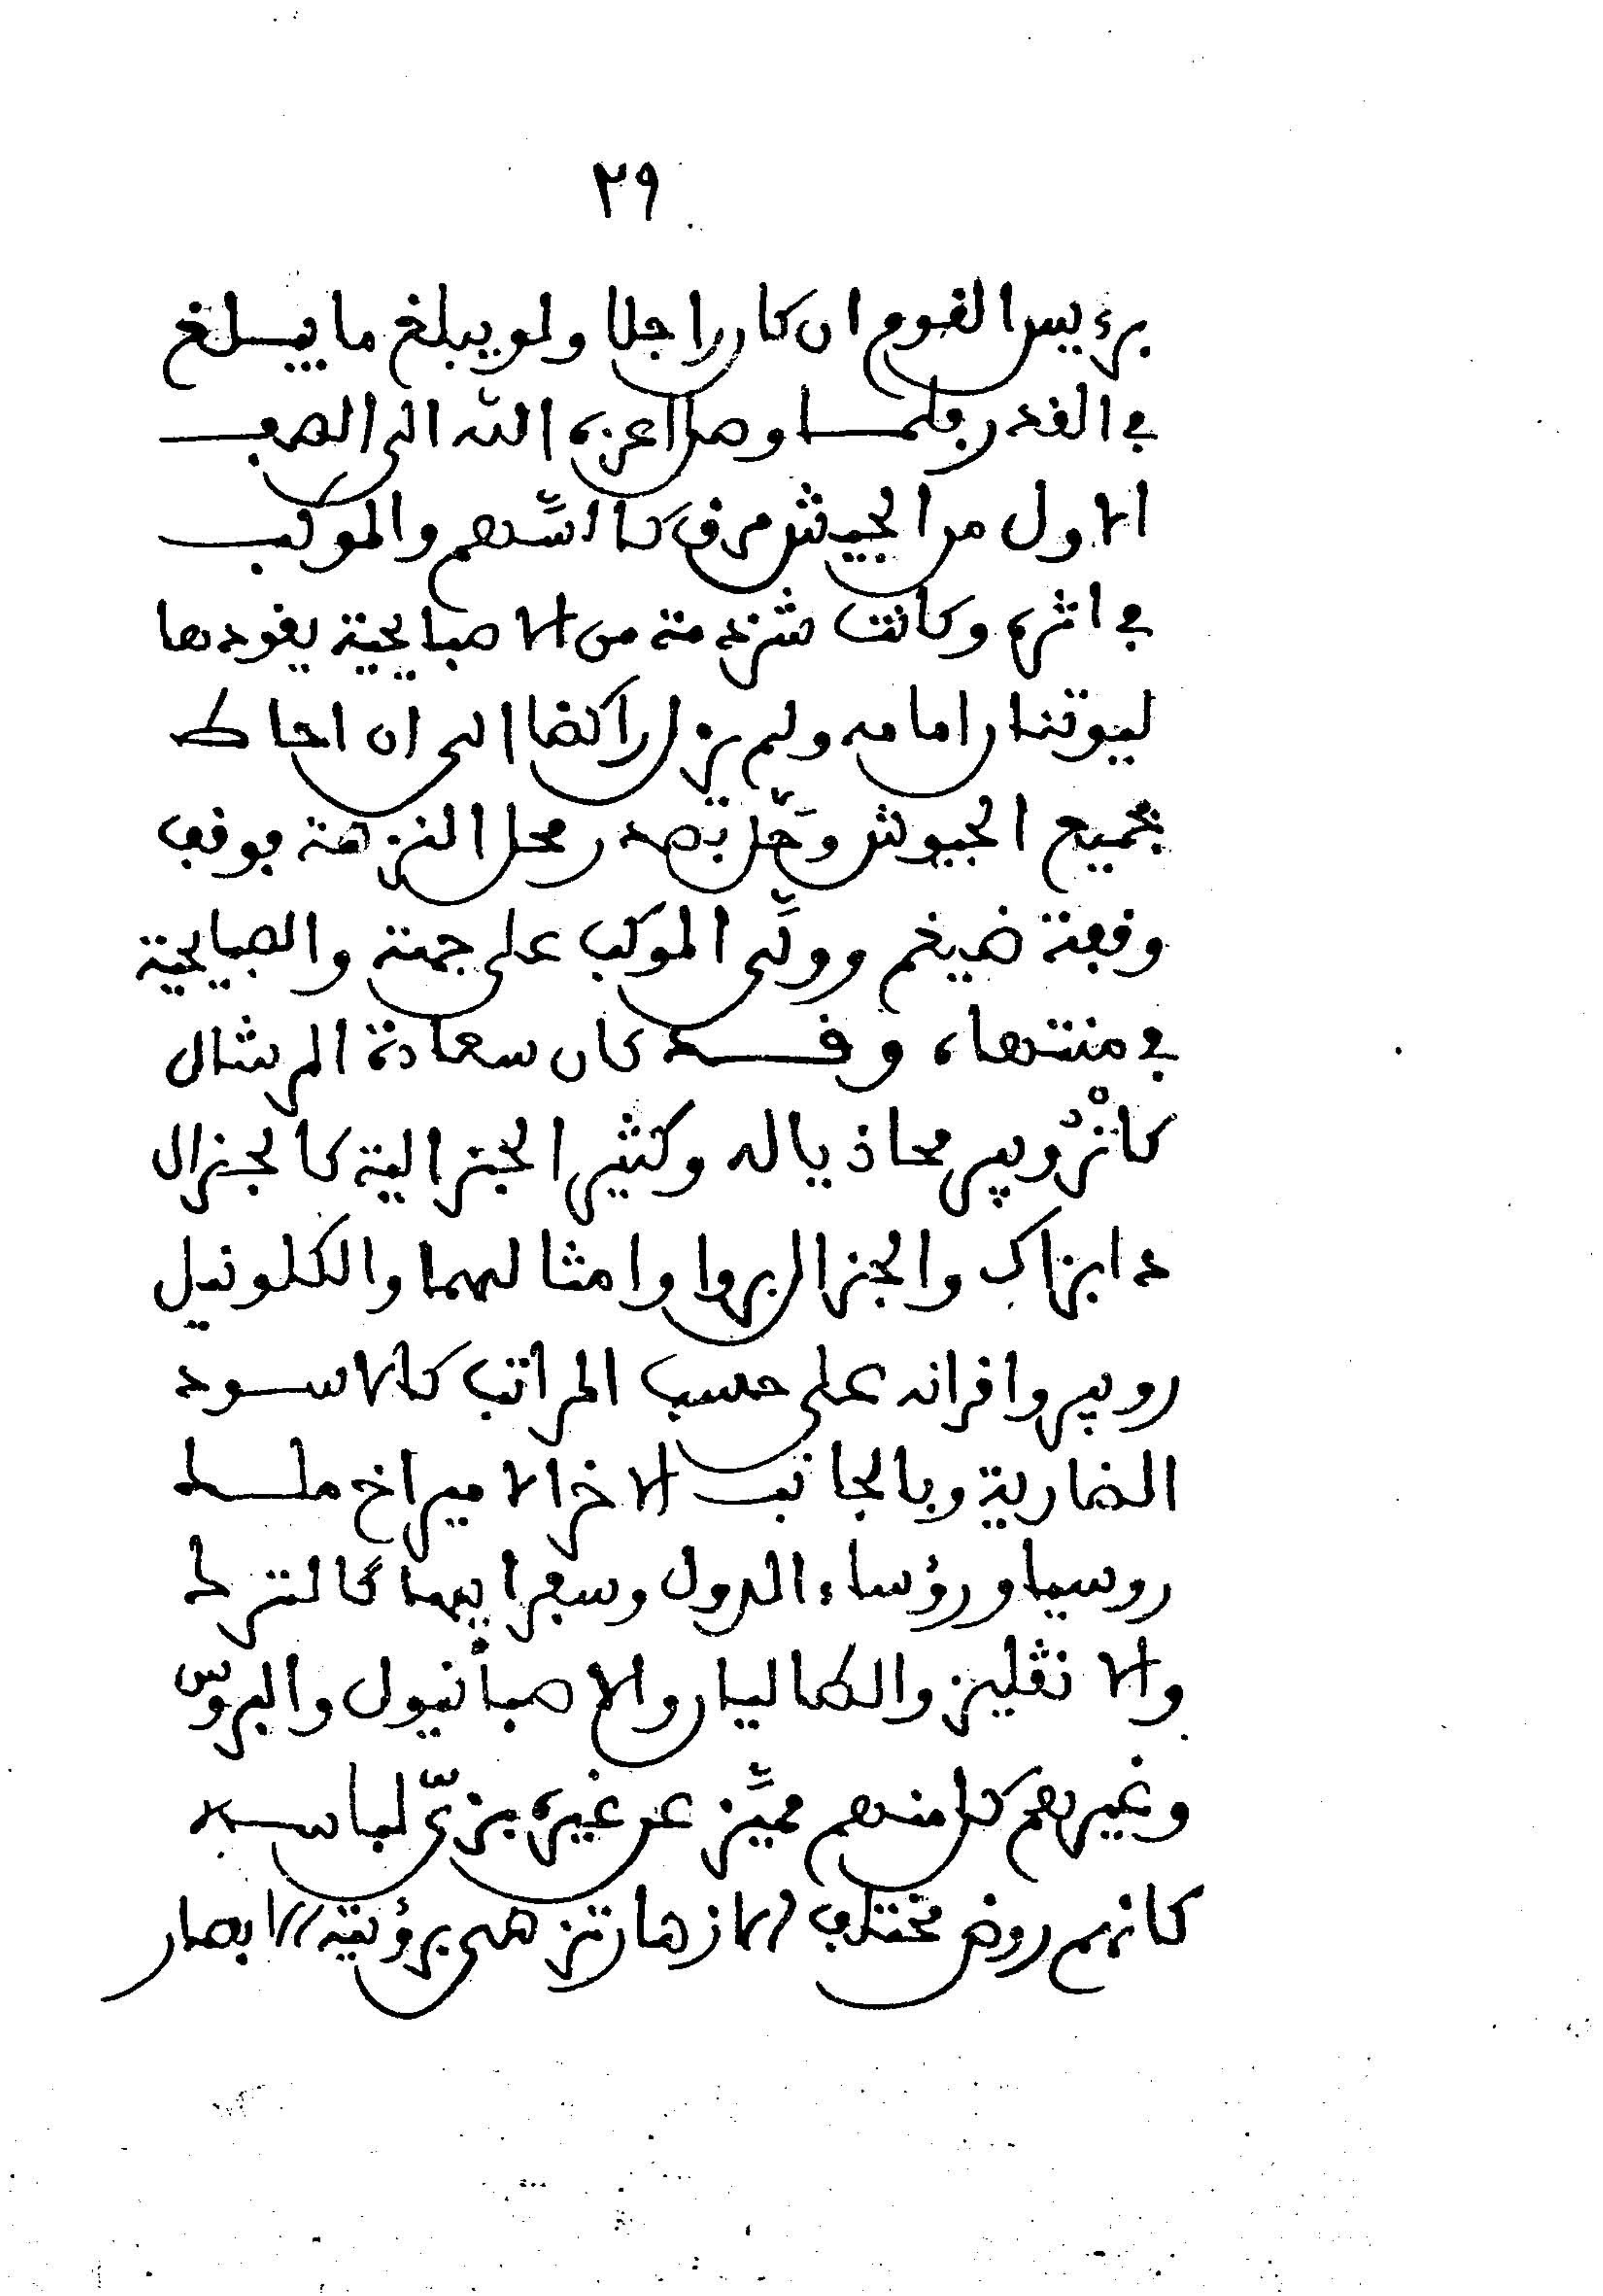 ٢٩
برءيس القوم ان كان راجلا ولو يبلغ ما يبلغ
في القدر فلمــا وصل اعزه الله الى الصف
الاول من الجيش مرق كالسهم والموكب
في اثره وكانت شرذمة من الاصبايحية يقودها
ليوتنان امامه ولم يزل راكضا الى ان احاط
بجميع الجيوش وحل بصدر محل النزهة فوقف
وقفة ضيغم وولى الموكب على جهته والصبايحية
في منتهاه، وقــد كان سعادة المرشال
كانْرُوبير محاذيا له وكثير الجنرالية كالجنرال
دابزاك والجنرال بروا وامثالهما والكلونيل
روبير واقرانه على حسب المراتب كالاسود
الضارية وبالجانب الاخر الامير اخ ملــط
روسيا ورؤساء الدول وسفرايها كالترك
والانڤليز والطاليان والاصبانيول والبروس
وغيرهم كل منهم مميَّز عن غيره بزيّ لباسه
كانهم روض مختلف الازهار تزهى برؤيته الابصار